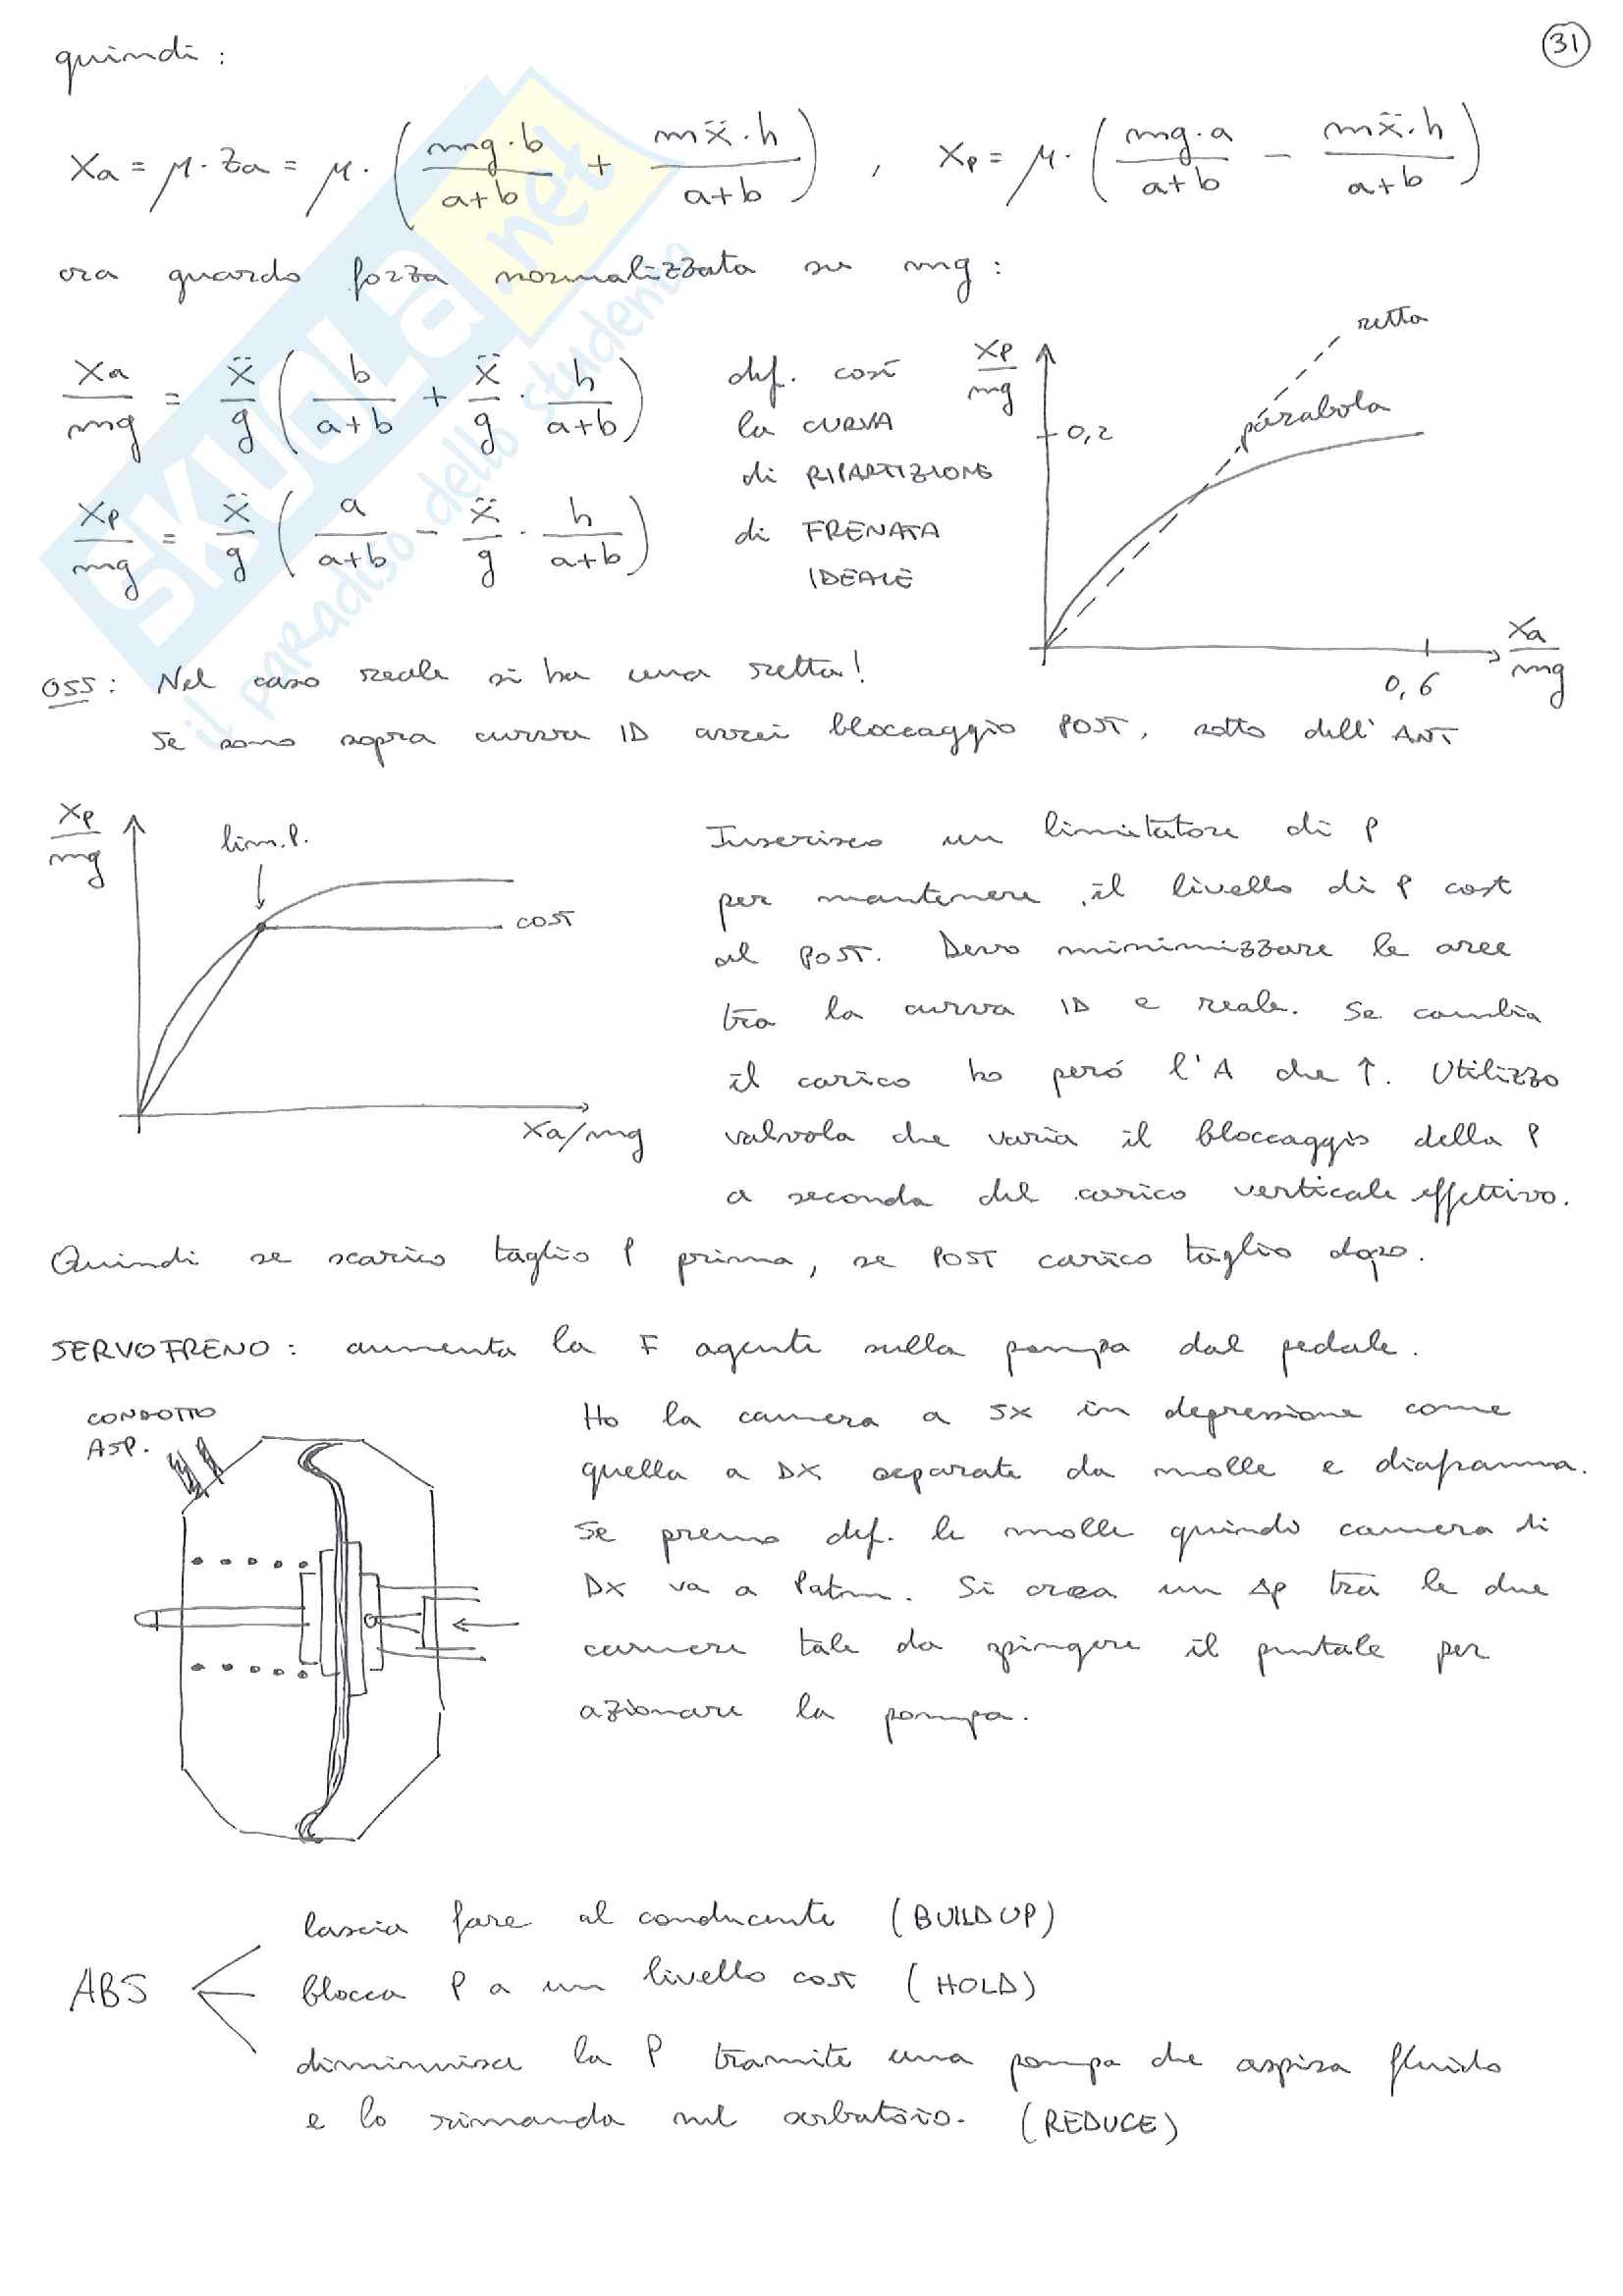 31
quindi :
Xa = μ · Za = μ · ( mg·b / a+b + mẍ·h / a+b ) , Xp = μ · ( mg·a / a+b − mẍ·h / a+b )
ora guardo forza normalizzata su mg :
Xa / mg = ẍ / g ( b / a+b + ẍ / g · h / a+b )
Xp / mg = ẍ / g ( a / a+b − ẍ / g · h / a+b )
def. così
la CURVA
di RIPARTIZIONE
di FRENATA
IDEALE
Xp / mg
0,2
retta
parabola
Xa / mg
0,6
OSS : Nel caso reale si ha una retta!
Se sono sopra curva ID avrei bloccaggio POST, sotto dell' ANT
Xp / mg
lim. P.
COST
Xa/mg
Inserisco un limitatore di P
per mantenere il livello di P cost
al POST. Devo minimizzare le aree
tra la curva ID e reale. Se cambia
il carico ho però l'A che ↑. Utilizzo
valvola che varia il bloccaggio della P
a seconda del carico verticale effettivo.
Quindi se scarico taglio P prima, se POST carico taglio dopo.
SERVOFRENO : aumenta la F agente sulla pompa dal pedale.
CONDOTTO
ASP.
Ho la camera a SX in depressione come
quella a DX separate da molle e diaframma.
Se premo def. le molle quindi camera di
DX va a Patm. Si crea un Δp tra le due
camere tale da spingere il puntale per
azionare la pompa.
ABS
lascia fare al conducente (BUILD UP)
blocca P a un livello cost (HOLD)
diminuisce la P tramite una pompa che aspira fluido
e lo rimanda nel serbatoio. (REDUCE)
SKUOLa.net
il paradiso dello studente